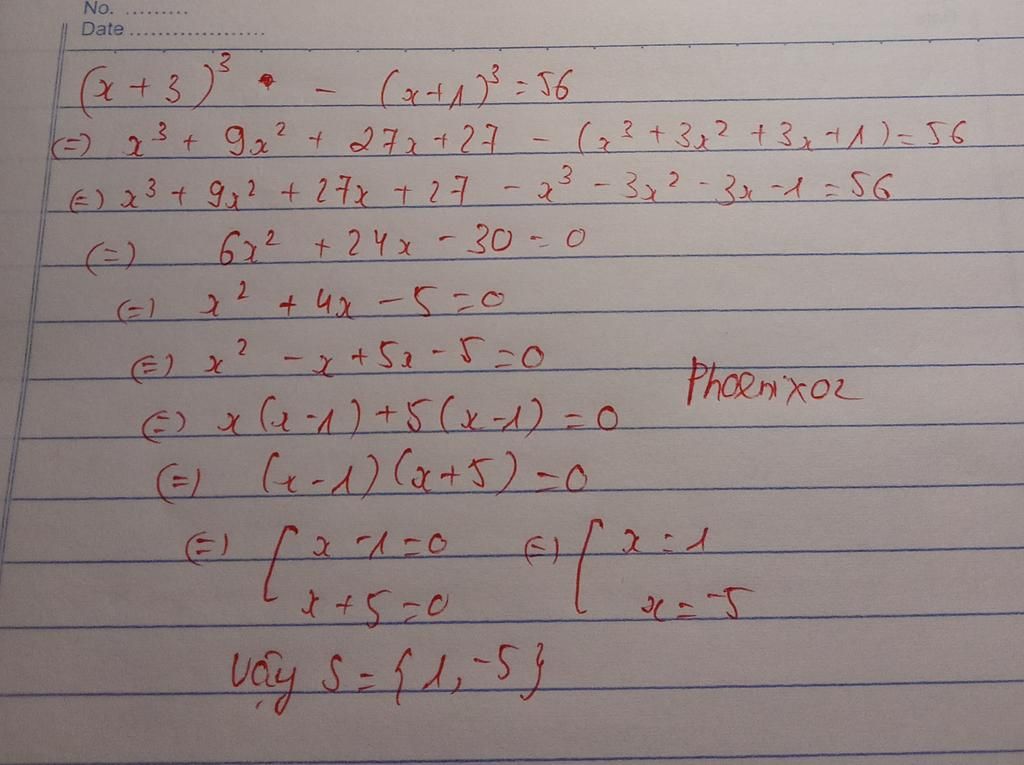 No. .........
Date ...................
(x + 3)³ - (x+1)³ = 56
(=) x³ + 9x² + 27x + 27 - (x³ + 3x² + 3x + 1) = 56
(=) x³ + 9x² + 27x + 27 - x³ - 3x² - 3x - 1 = 56
(=) 6x² + 24x - 30 = 0
(=) x² + 4x - 5 = 0
(=) x² - x + 5x - 5 = 0
Phoenix02
(=) x(x-1) + 5(x-1) = 0
(=) (x-1)(x+5) = 0
(=) [ x - 1 = 0 (=) [ x = 1
x + 5 = 0 x = -5
Vậy S = {1, -5}